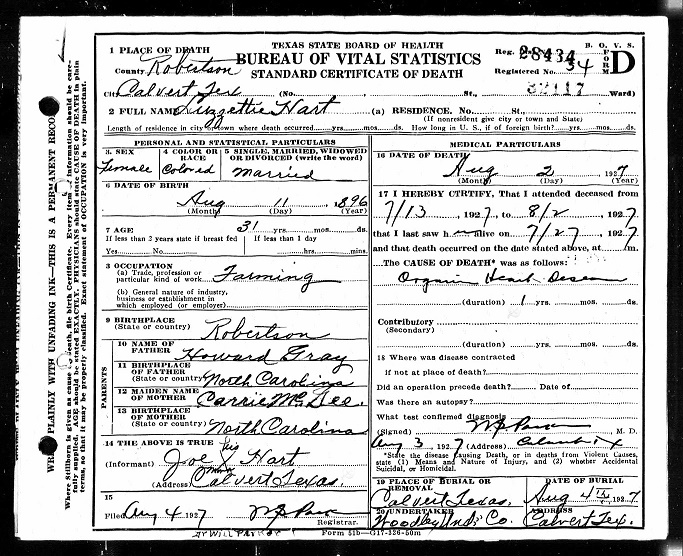 TEXAS STATE BOARD OF HEALTH
BUREAU OF VITAL STATISTICS
STANDARD CERTIFICATE OF DEATH
B. O. V. S.
FORM D
Reg. 28434
Registered No. 34
32117
1 PLACE OF DEATH
County Robertson
City Calvert Tex (No. , St., Ward)
2 FULL NAME Luzzettie Hart (a) RESIDENCE. No. St.,
(If nonresident give city or town and State)
Length of residence in city or town where death occurred yrs. mos. ds. How long in U. S., if of foreign birth? yrs. mos. ds.
PERSONAL AND STATISTICAL PARTICULARS
3. SEX
Female
4 COLOR OR RACE
Colored
5 SINGLE, MARRIED, WIDOWED OR DIVORCED (write the word)
Married
6 DATE OF BIRTH
Aug 11 1896
(Month) (Day) (Year)
7 AGE 31 yrs. mos. ds.
If less than 2 years state if breast fed If less than 1 day
Yes No hrs. mins.
8 OCCUPATION
(a) Trade, profession or particular kind of work Farming
(b) General nature of industry, business or establishment in which employed (or employer)
9 BIRTHPLACE
(State or country) Robertson
PARENTS
10 NAME OF FATHER Howard Gray
11 BIRTHPLACE OF FATHER
(State or country) North Carolina
12 MAIDEN NAME OF MOTHER Carrie McGee.
13 BIRTHPLACE OF MOTHER
(State or country) North Carolina
14 THE ABOVE IS TRUE
(Informant) Joe his X mark Hart
Address Calvert Texas.
15
Filed Aug 4 1927
Registrar.
MEDICAL PARTICULARS
16 DATE OF DEATH
Aug 2 1927
(Month) (Day) (Year)
17 I HEREBY CERTIFY, That I attended deceased from
7/13, 1927, to 8/2 1927
that I last saw h alive on 7/27, 1927
and that death occurred on the date stated above, at m.
The CAUSE OF DEATH* was as follows:
Organic Heart Disease
(duration) 1 yrs. mos. ds.
Contributory
(Secondary)
(duration) yrs. mos. ds.
18 Where was disease contracted
if not at place of death?
Did an operation precede death? Date of
Was there an autopsy?
What test confirmed diagnosis
(Signed) M. D.
Aug 3 1927 (Address) Calvert Tx
*State the disease Causing Death, or in deaths from Violent Causes, state (1) Means and Nature of Injury, and (2) whether Accidental Suicidal, or Homicidal.
19 PLACE OF BURIAL OR REMOVAL
Calvert Texas.
DATE OF BURIAL
Aug 4th, 1927
20 UNDERTAKER
Woodley Und. Co.
ADDRESS
Calvert Tex.
Form 51b—G17-326-50m